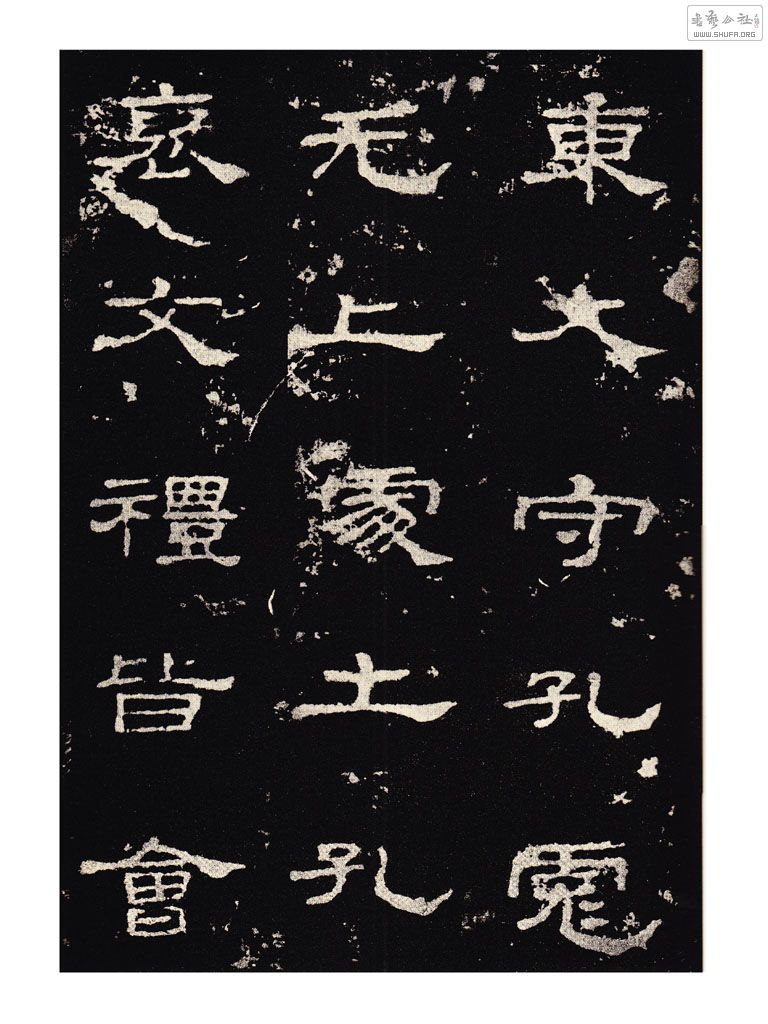 東大守孔彪
元上處土孔
褒文禮皆會
書藝公社
WWW.SHUFA.ORG